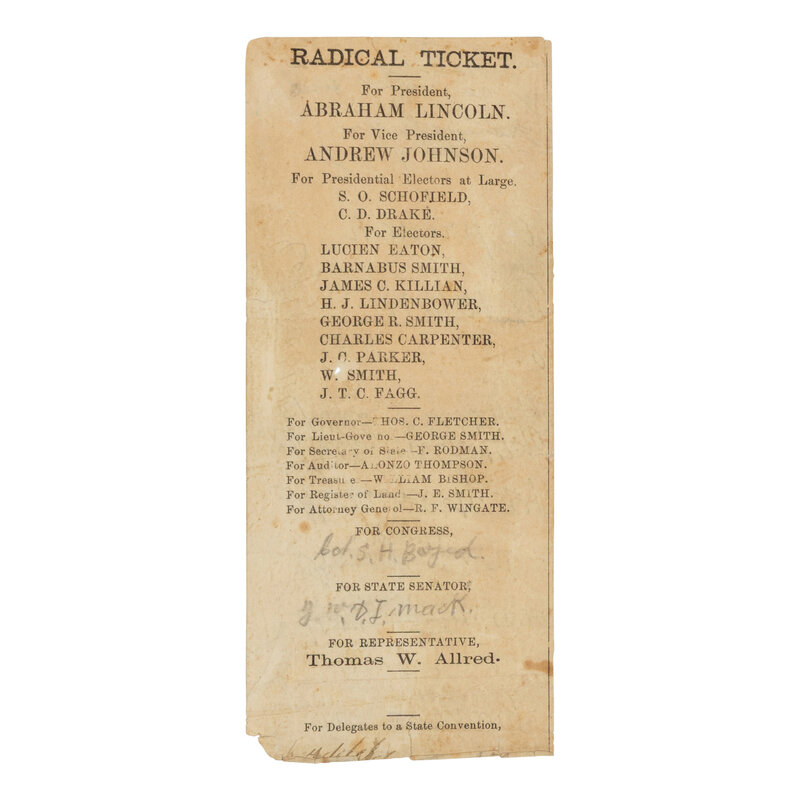 RADICAL TICKET.
For President,
ABRAHAM LINCOLN.
For Vice President,
ANDREW JOHNSON.
For Presidential Electors at Large.
S. O. SCHOFIELD,
C. D. DRAKE.
For Electors.
LUCIEN EATON,
BARNABUS SMITH,
JAMES C. KILLIAN,
H. J. LINDENBOWER,
GEORGE R. SMITH,
CHARLES CARPENTER,
J. C. PARKER,
W. SMITH,
J. T. C. FAGG.
For Governor—THOS. C. FLETCHER.
For Lieut-Gove no.—GEORGE SMITH.
For Secretary of State—F. RODMAN.
For Auditor—ALONZO THOMPSON.
For Treasu e.—WILLIAM BISHOP.
For Register of Land—J. E. SMITH.
For Attorney General—R. F. WINGATE.
FOR CONGRESS,
Col. S. H. Boyd.
FOR STATE SENATOR,
D. J. Mack.
FOR REPRESENTATIVE,
Thomas W. Allred.
For Delegates to a State Convention,